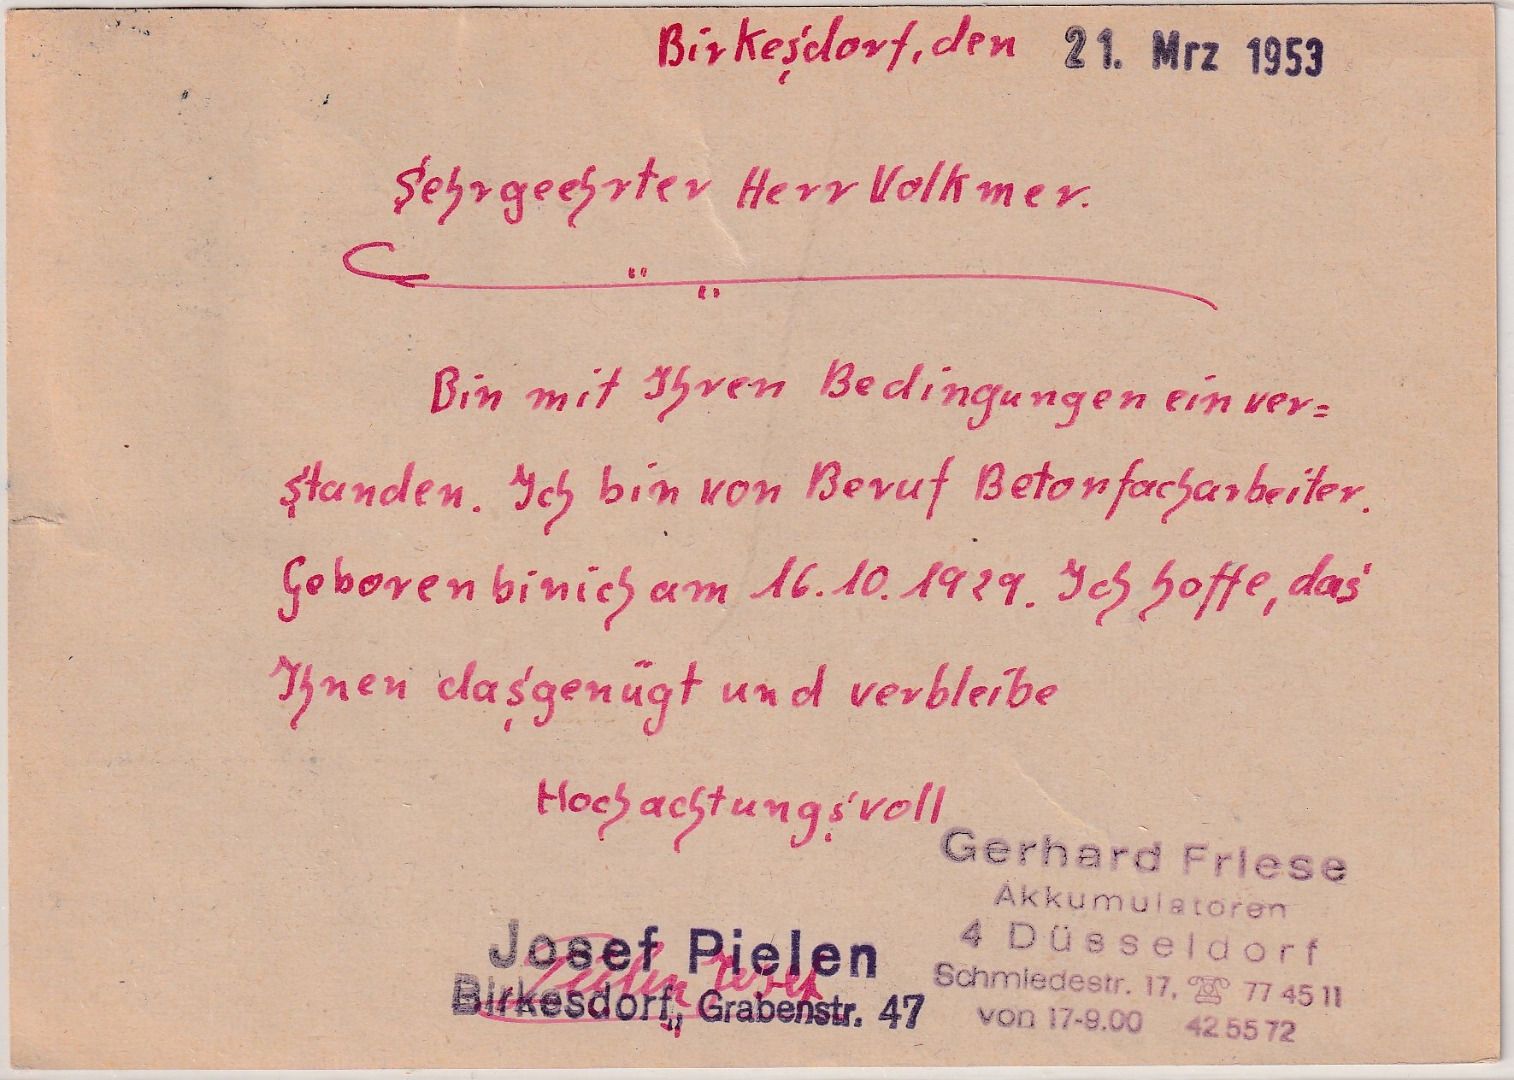 Birkesdorf, den 21. Mrz 1953
Sehrgeehrter Herr Volkmer.
Bin mit Ihren Bedingungen einver=
standen. Ich bin von Beruf Betonfacharbeiter.
Geboren bin ich am 16.10.1929. Ich hoffe, das
Ihnen das genügt und verbleibe
Hochachtungsvoll
Josef Pielen
Pielen Josef
Birkesdorf, Grabenstr. 47
Gerhard Friese
Akkumulatoren
4 Düsseldorf
Schmiedestr. 17, ☏ 77 45 11
von 17-9.00 42 55 72